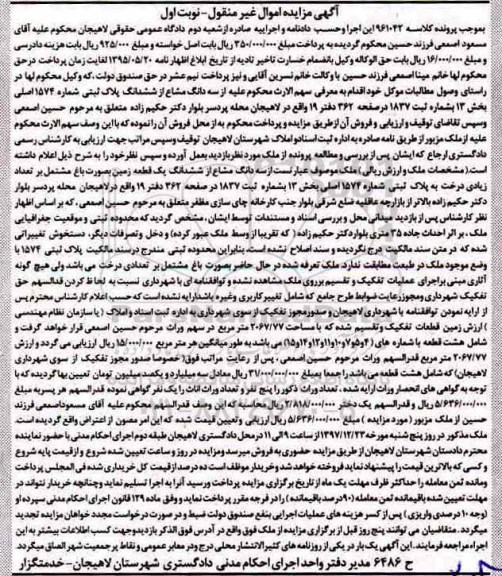 آگهی مزایده اموال غیر منقول-نوبت اول
بموجب پرونده کلاسه ۹۶۱۰۴۲ این اجرا و حسب دادنامه و اجراییه صادره از شعبه دوم دادگاه عمومی حقوقی لاهیجان محکوم علیه آقای
مسعود اصمعی فرزند حسین محکوم گردیده به پرداخت مبلغ ۳۵۰/۰۰۰/۰۰۰ ریال بابت اصل خواسته و مبلغ ۹۲۵/۰۰۰ ریال بابت هزینه دادرسی
و مبلغ ۱۶/۰۰۰/۰۰۰ ریال بابت حق الوکاله وکیل بانضمام خسارت تاخیر تادیه از تاریخ ابلاغ اظهار نامه ۱۳۹۵/۰۵/۲۰ لغایت زمان پرداخت در حق
محکوم لها خانم مینا اصمعی فرزند حسین با وکالت خانم نسرین آقایی و نیز پرداخت نیم عشر در حق صندوق دولت، که وکیل محکوم لها در
راستای وصول مطالبات موکل خود اقدام به معرفی سهم الارث محکوم علیه از سه دانگ مشاع از ششدانگ پلاک ثبتی شماره ۱۵۷۴ اصلی
بخش ۱۳ بشماره ثبت ۱۸۳۷ در صفحه ۳۶۲ دفتر ۱۹ واقع در لاهیجان محله پردسر بلوار دکتر حکیم زاده متعلق به مرحوم حسین اصمعی
وسپس تقاضای توقیف و ارزیابی و فروش آن از طریق مزایده و پرداخت محکوم به از محل فروش آن را نموده که با این وصف سهم الارث محکوم
علیه از ملک مزبور از طریق نامه صادره به اداره ثبت اسناد و املاک شهرستان لاهیجان توقیف وسپس مراتب جهت ارزیابی به کارشناس رسمی
دادگستری ارجاع که ایشان پس از بررسی و مطالعه پرونده از ملک مورد نظر بازدید بعمل آورده و سپس نظر خود را به شرح ذیل اعلام داشته
است.( مشخصات ملک و ارزش ریالی )ملک موصوف عبارتست از سه دانگ مشاع از ششدانگ یک قطعه زمین بصورت باغ مشتمل بر تعداد
زیادی درخت به پلاک ثبتی شماره ۱۵۷۴ اصلی بخش ۱۳ بشماره ثبت ۱۸۳۷ در صفحه ۳۶۲ دفتر ۱۹ واقع در لاهیجان محله پردسر بلوار
دکتر حکیم زاده بالاتر از بازارچه عاقلیه ضلع شرقی بلوار جنب کارخانه چای سازی مظفر متعلق به مرحوم حسین اصمعی، که بر اساس اظهار
نظر کارشناس پس از بازدید میدانی محل و بررسی اسناد و مستندات توسط ایشان، مشخص گردید که محدوده ثبتی و موقعیت جغرافیایی
ملک، بر اثر احداث جاده ۳۵ متری بلوار دکتر حکیم زاده ( که تقریبا از وسط ملک عبور کرده) و دخل وتصرفات دیگر، دستخوش تغییراتی
شده که در متن سند مالکیت درج نگردیده و سند اصلاح نشده است، بنابراین محدوده ثبتی مندرج در سند مالکیت پلاک ثبتی ۱۵۷۴ با
وضع موجود ملک در طبیعت مطابقت ندارد. ملک تعرفه شده در حال حاضر بصورت باغ مشتمل بر تعدادی درخت می باشد ولی هیچ گونه
آثاری مبنی بر اجرای عملیات تفکیک و تقسیم بر روی ملک مشاهده نشده و توافقنامه ای با شهرداری نسبت به لحاظ کردن فدالسهم حق
تفکیک شهرداری و مجوز رعایت ضوابط طرح جامع که شامل تغییر کاربری وغیره باشد ارایه نشده است که حسب اعلام کارشناس محترم پس
از ارایه نمودن توافقنامه با شهرداری لاهیجان و صدور مجوز تفکیک از سوی شهرداری به اداره ثبت اسناد و املاک ( یا سازمان نظام مهندسی
) ارزش زمین قطعات تفکیک و تقسیم شده که با مساحت ۲۰۶۷/۷۷ متر مربع در سهم وراث مرحوم حسین اصمعی قرار خواهد گرفت و
متر مربع ۱۵/۰۰۰/۰۰۰ ریال ارزیابی می گردد و ارزش
۲۰۶۷/۷۷ متر مربع قدرالسهم وراث مرحوم حسین اصمعی . پس از رعایت مراتب فوق( خصوصا صدور مجوز تفکیک از سوی شهرداری
لاهیجان) که شامل هشت قطعه می باشد را جمعا بمبلغ ۳۱/۰۰۰/۰۰۰/۰۰۰ ریال معادل سه میلیارد و یکصد میلیون تومان تعیین بها گردیده که با
توجه به گواهی های انحصار وراث ارایه شده . تعداد وراث ذکور را پنج نفر و تعداد وراث اناث را یک نفر گواهی نموده قدرالسهم هر پسر به مبلغ
۵/۶۳۶/۰۰۰/۰۰۰ ریال و قدرالسهم یک دختر ۲/۸۱۸/۰۰۰/۰۰۰ ریال محاسبه که این وصف قدرالسهم محکوم علیه آقای مسعود اصمعی فرزند
حسین از ملک مزبور ( مورد مزایده ) مبلغ ۵/۶۳۶/۰۰۰/۰۰۰ ریال ارزیابی و تعیین قیمت شده که این امر مصون از اعتراض واقع گردیده است.
ملک مذکور در روز پنج شنبه مورخه ۱۳۹۷/۱۲/۲۳ از ساعت ۹ الی ۱۱ در محل دادگستری لاهیجان طبقه دوم اجرای احکام مدنی با حضور نماینده
محترم دادستان شهرستان لاهیجان از طریق مزایده حضوری به فروش میرسد و مزایده در روز و ساعت تعیین شده شروع و از قیمت پایه شروع
و کسی که بالاترین قیمت را پیشنهاد نماید فروخته خواهد شد و خریدار موظف است ده درصد از قیمت کل خریداری شده فی المجلس پرداخت
ومانده ثمن معامله را حداکثر ظرف مهلت یک ماه از تاریخ برگزاری مزایده پرداخت و رسید آنرا به اجرا تسلیم نماید و چنانچه خریدار نتواند در
مهلت تعیین شده باقیمانده ثمن معامله (۹۰ درصد باقیمانده ) را در فرجه مقرر پرداخت نماید و وفق ماده ۱۲۹ قانون اجرای احکام مدنی سپرده او
(وجه ۱۰ درصدی واریزی ) پس از کسر هزینه های عملیات اجرایی بنفع صندوق دولت ضبط و در صورت درخواست مجدد خواهان مزایده تجدید
میگردد. متقاضیان می توانند پنج روز قبل از برگزاری مزایده از ملک فوق واقع در آدرس فوق الذکر بازدید وجهت کسب اطلاعات بیشتر به این
اجراء مراجعه فرمایند. این آگهی یک بار در یکی از روزنامه های کثیر الانتشار محلی درج ودر معابر عمومی و نقاط پر جمعیت شهر الصاق میگردد.
ح ۶۴۸۶ مدیر دفتر واحد اجرای احکام مدنی دادگستری شهرستان لاهیجان-خدمتگزار